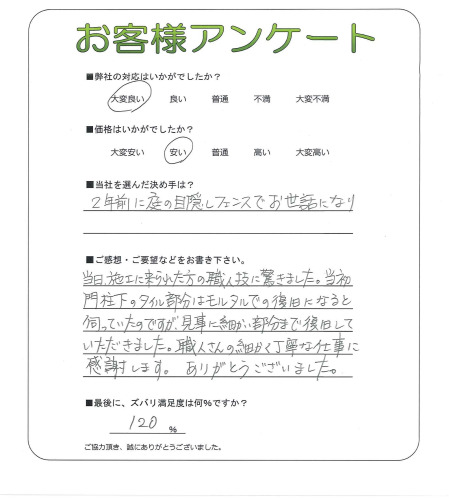 お客様アンケート
■弊社の対応はいかがでしたか？
大変良い 良い 普通 不満 大変不満
■価格はいかがでしたか？
大変安い 安い 普通 高い 大変高い
■当社を選んだ決め手は？
2年前に庭の目隠しフェンスでお世話になり
■ご感想・ご要望などをお書き下さい。
当日、施工に来られた方の職人技に驚きました。当初
門柱下のタイル部分はモルタルでの復旧になると
伺っていたのですが、見事に細かい部分まで復旧して
いただきました。職人さんの細かく丁寧な仕事に
感謝します。 ありがとうございました。
■最後に、ズバリ満足度は何%ですか？
120 %
ご協力頂き、誠にありがとうございました。